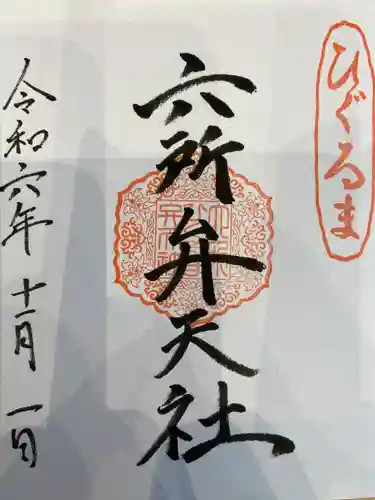 ひぐるま
六所弁天社
令和六年 十一月 一日